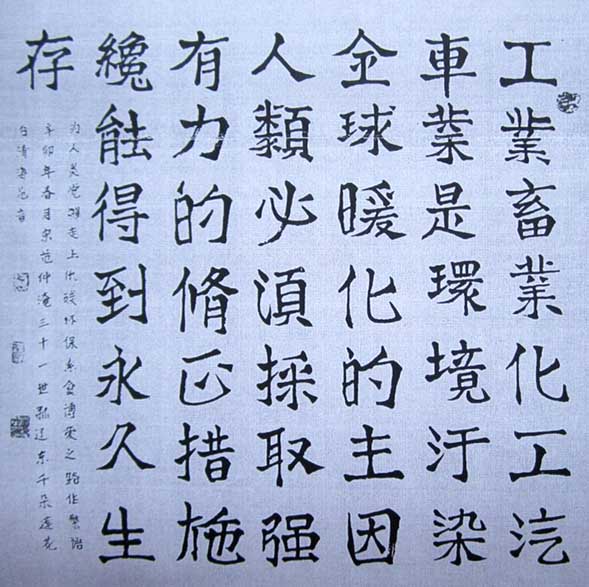 工業畜業化工汽
車業是環境汙染
全球暖化的主因
人類必湏採取强
有力的脩正措施
纔能得到永久生
存
为人类觉醒走上低碳环保素食博爱之路作警语
辛卯年春月宋范仲淹三十一世孫辽东千朵莲花